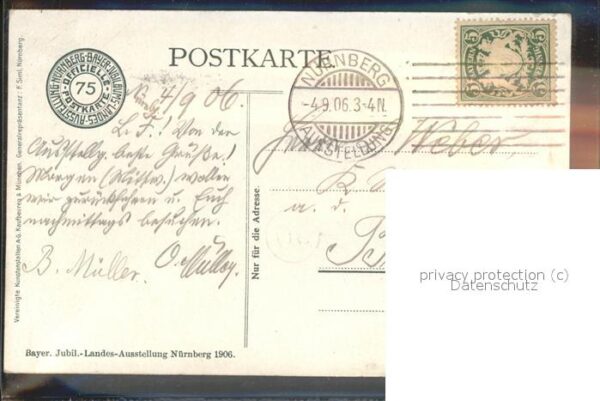 POSTKARTE
NÜRNBERG-BAYER-JUBILÄUMS-LANDES-AUSSTELLUNG
OFFICIELLE
75
POSTKARTE
NÜRNBERG
-4.9.06.3-4N.
AUSSTELLUNG
5 5
4/9 06.
L. F.! Von der
Ausstellg. beste Grüße!
Morgen (Mittw.) wollen
wir zurückfahren u. Euch
nachmittags besuchen.
B. Müller. O. Müller.
Weber
K
a. d.
Nur für die Adresse.
Vereinigte Kunstanstalten A.G. Kaufbeuren & München. Generalrepräsentanz: F. Süml, Nürnberg.
Bayer. Jubil.-Landes-Ausstellung Nürnberg 1906.
privacy protection (c)
Datenschutz